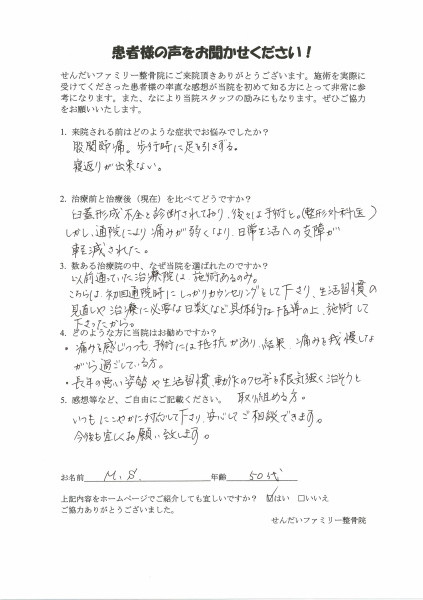 患者様の声をお聞かせください!
せんだいファミリー整骨院にご来院頂きありがとうございます。施術を実際に
受けてくださった患者様の率直な感想が当院を初めて知る方にとって非常に参
考になります。また、なにより当院スタッフの励みにもなります。ぜひご協力
をお願いいたします。
1. 来院される前はどのような症状でお悩みでしたか?
股関節痛。歩行時に足を引きずる。
寝返りが出来ない。
2. 治療前と治療後(現在)を比べてどうですか?
臼蓋形成不全と診断されており、後々は手術と。(整形外科医)
しかし、通院により痛みが弱くなり、日常生活への支障が
軽減された。
3. 数ある治療院の中、なぜ当院を選ばれたのですか?
以前通っていた治療院は、施術あるのみ。
こちらは、初回通院時にしっかりカウンセリングをして下さり、生活習慣の
見直しや治療に必要な日数など具体的な指導の上、施術して
下さったから。
4. どのような方に当院はお勧めですか?
・痛みを感じつつも、手術には抵抗があり、結果、痛みを我慢しな
がら過ごしている方。
・長年の悪い姿勢や生活習慣、動作のクセ等を根気強く治そうと
取り組める方。
5. 感想等など、ご自由にご記載ください。
いつもにこやかに対応して下さり、安心してご相談できます。
今後も宜しくお願い致します。
お名前 M.S. 年齢 50代
上記内容をホームページでご紹介しても宜しいですか? ☑はい □いいえ
ご協力ありがとうございました。
せんだいファミリー整骨院